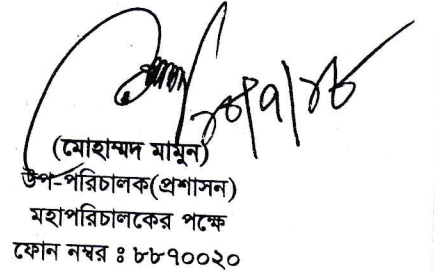 (মোহাম্মদ মামুন)
উপ-পরিচালক(প্রশাসন)
মহাপরিচালকের পক্ষে
ফোন নম্বর ঃ ৮৮৭০০২০